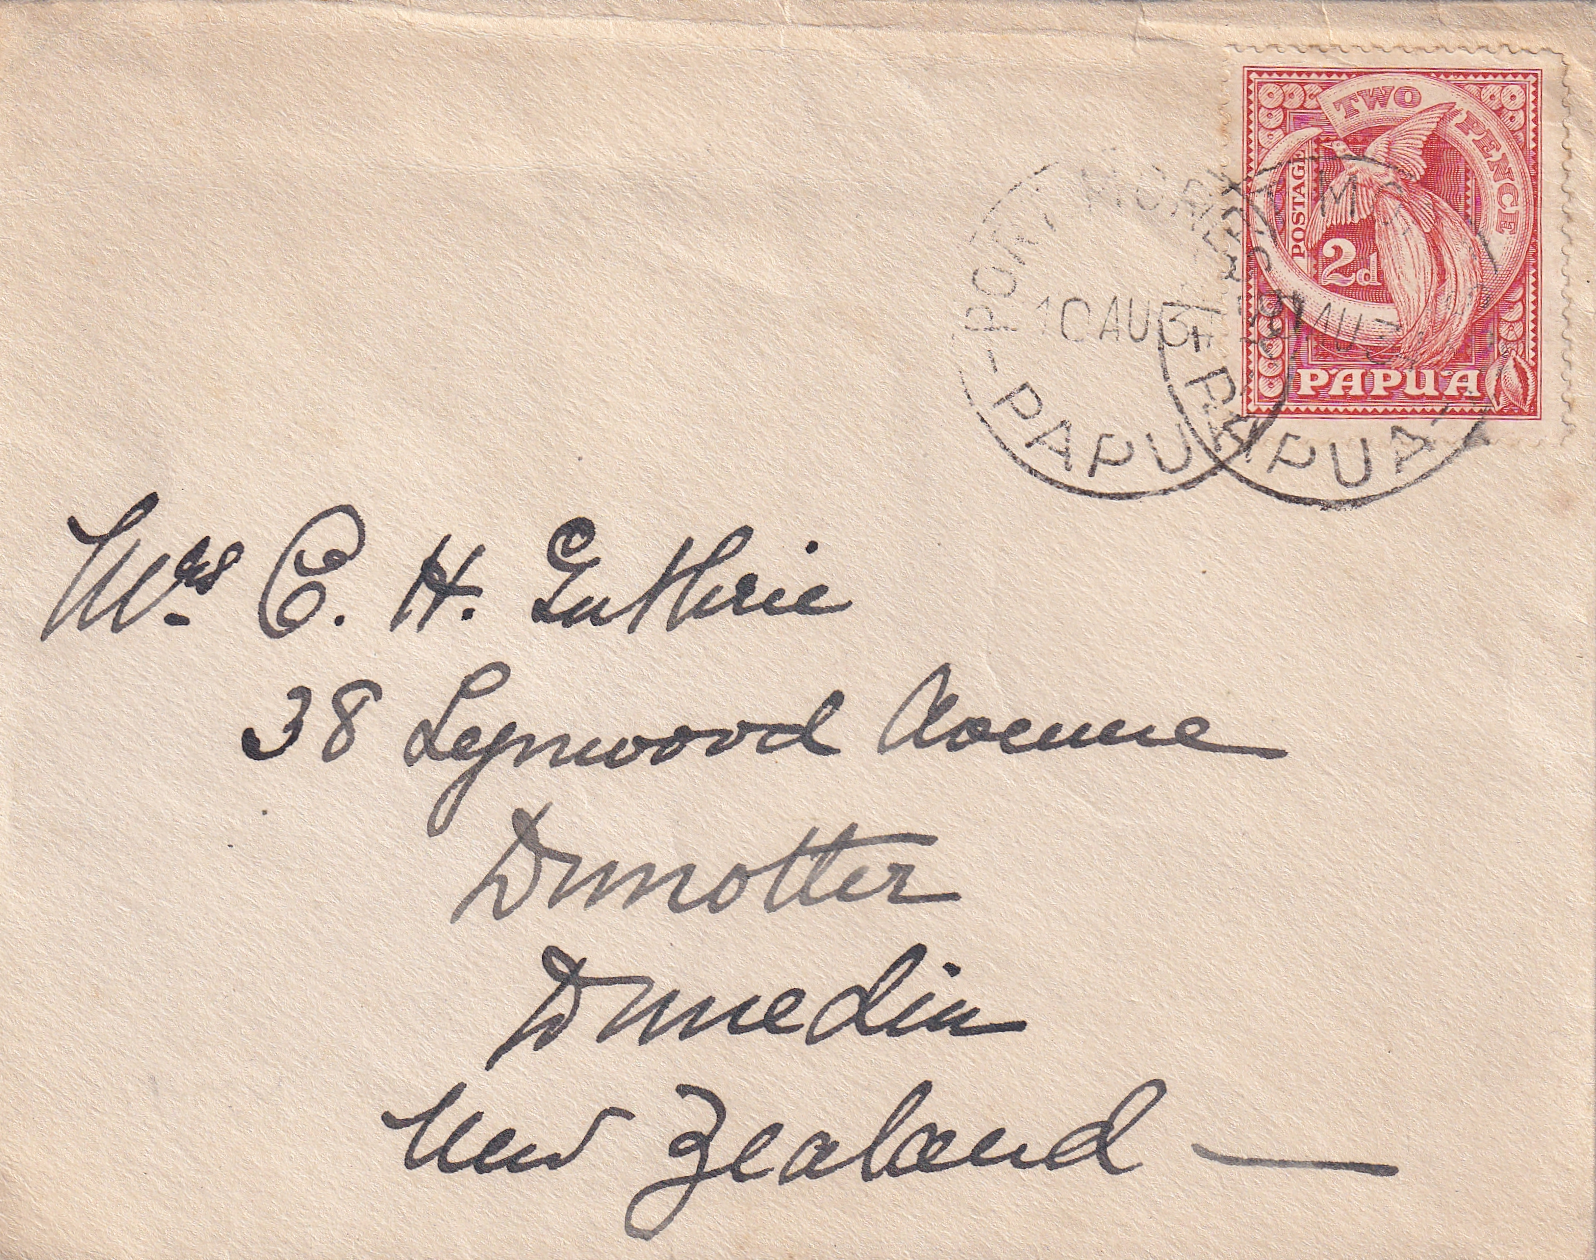 TWO PENCE
POSTAGE
2d
PAPUA
PORT MORESBY
10 AU 34
PAPUA
PAPUA
Mrs C. H. Guthrie
38 Lynwood Avenue
Dunotter
Dunedin
New Zealand